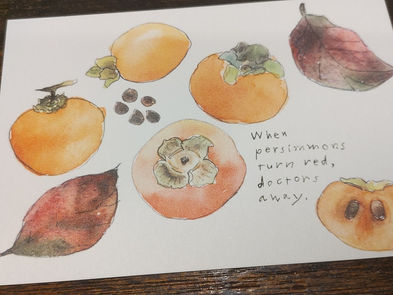 When
persimmons
turn red,
doctors
away.